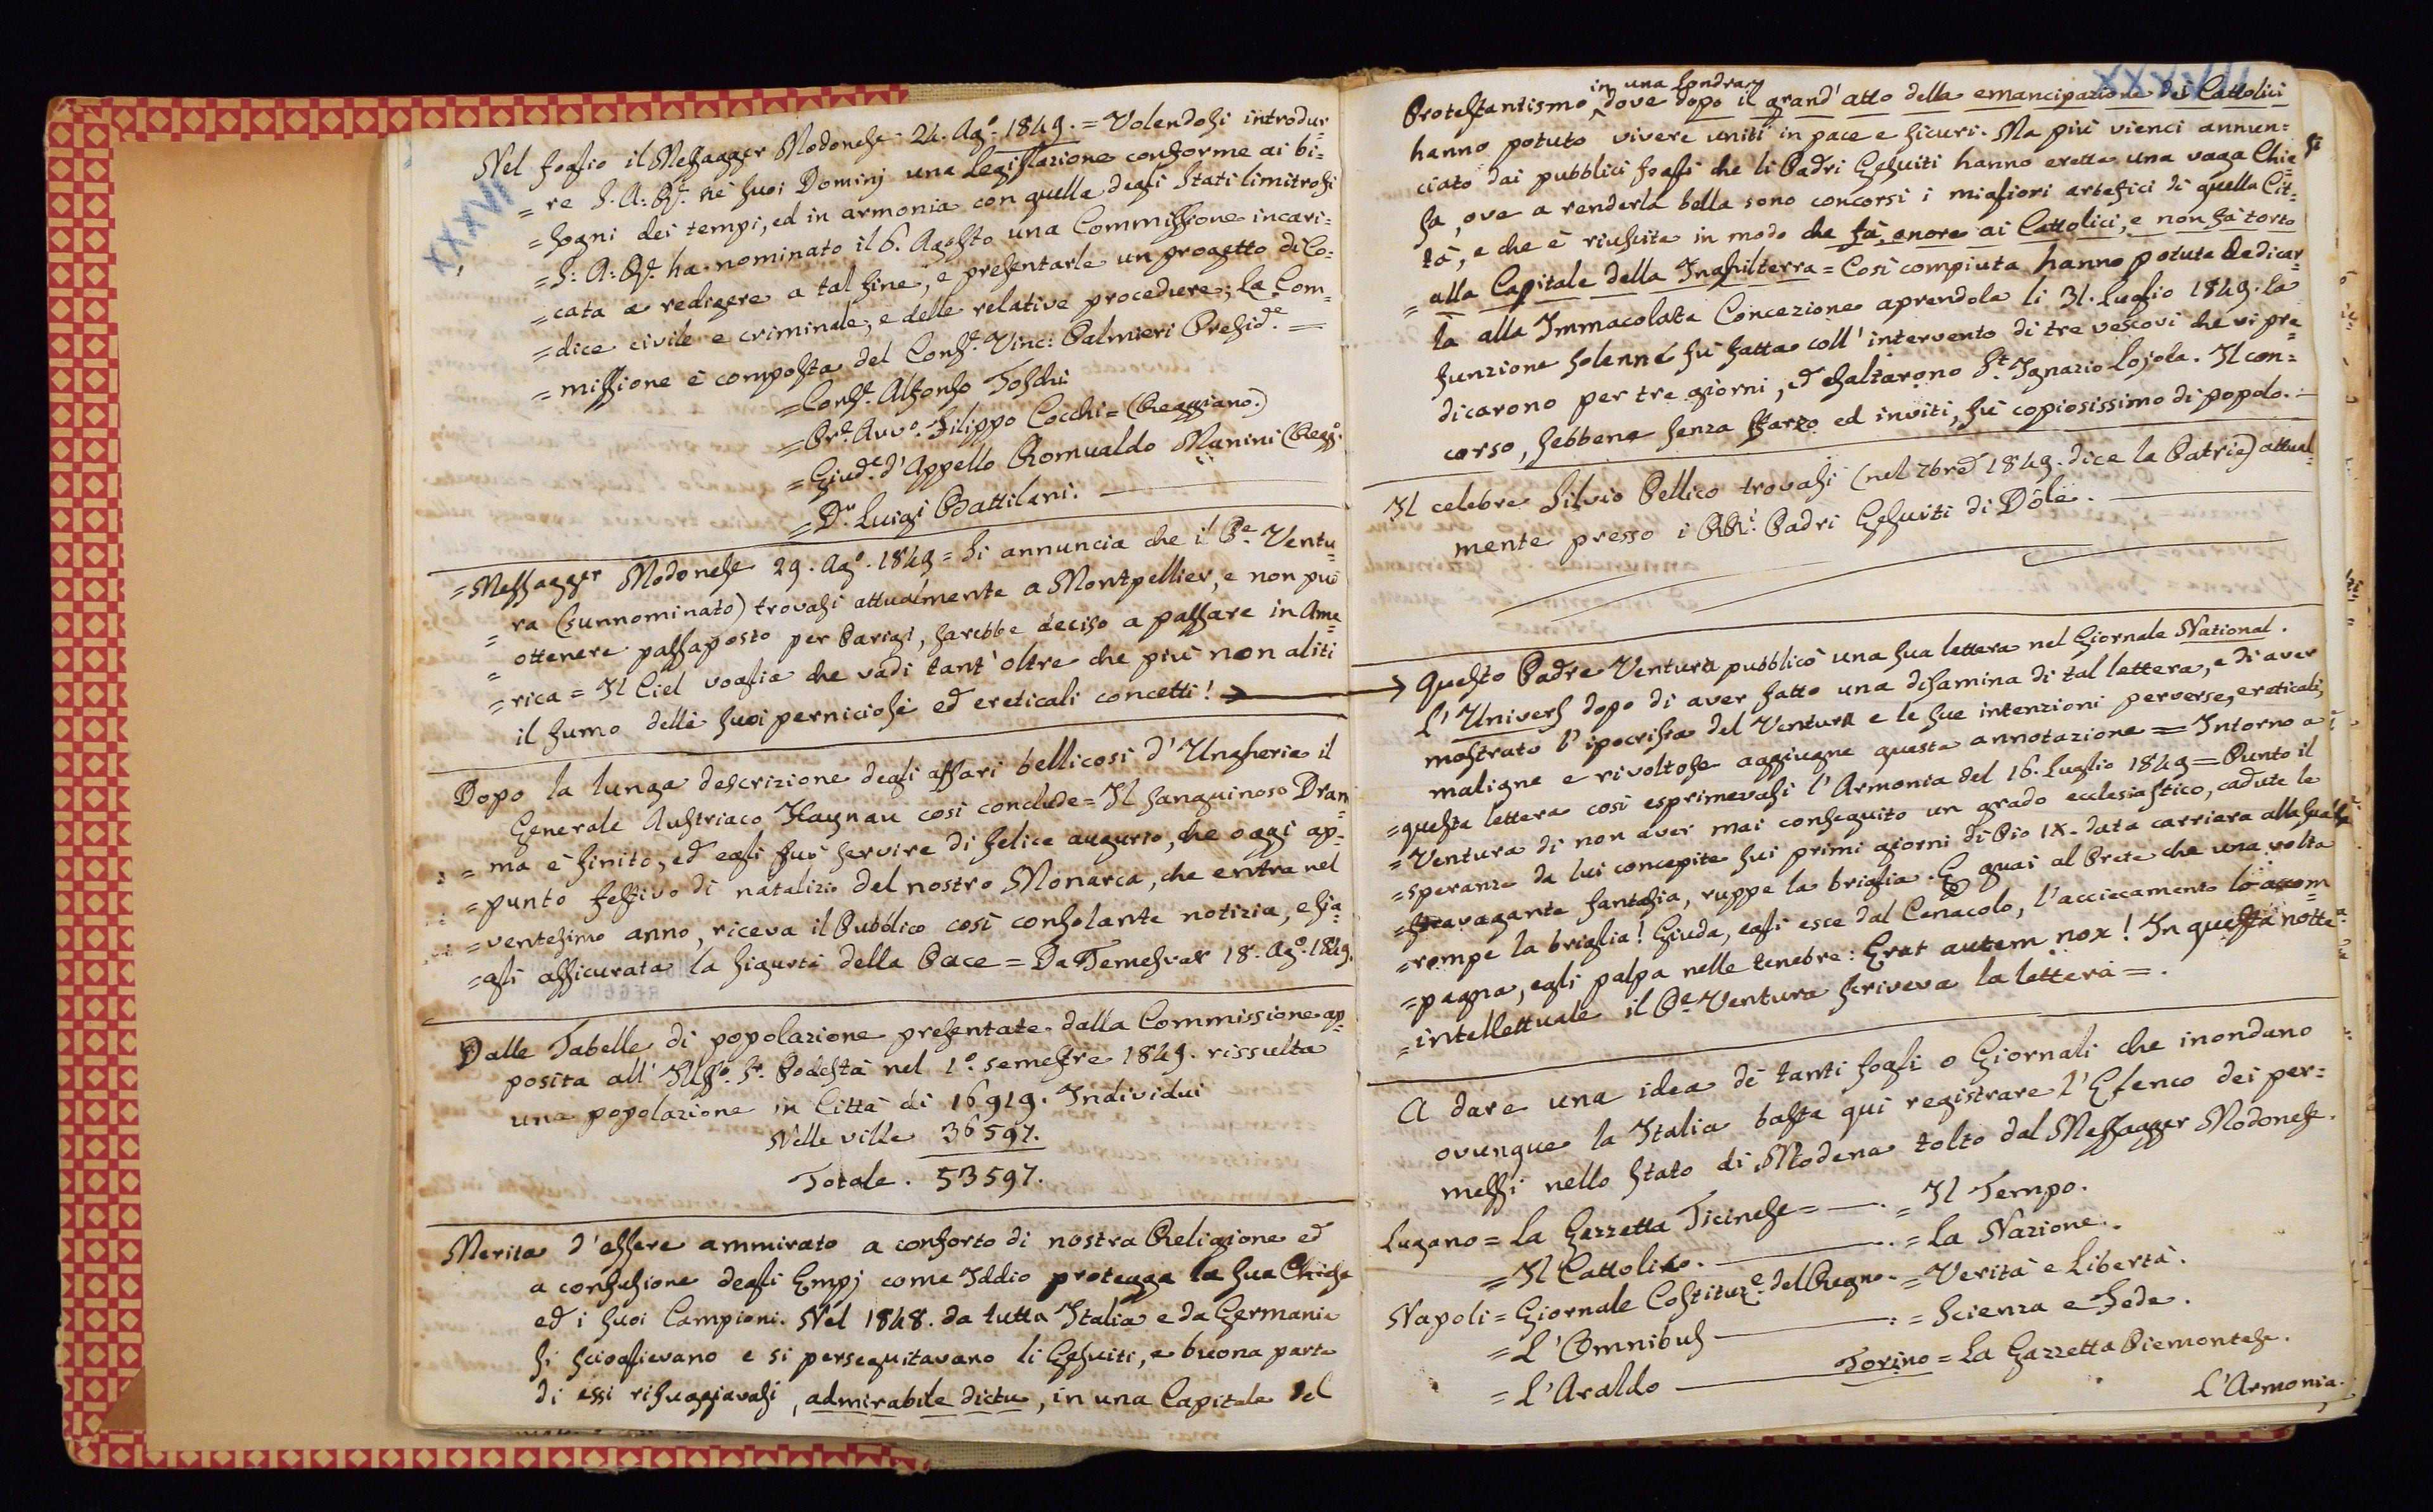 XXXVI
Nel foglio il Messagger Modonese 24. Ag.º 1849. = Volendosi introdur=
= re S. A: R.e ne' suoi Dominj una Legislazione conforme ai bi=
= sogni dei tempi, ed in armonia con quella degli Stati limitrofi
= S: A: R.e ha nominato il 6. Agosto una Commissione incari=
= cata a redigere a tal fine, e presentarle un progetto di Co=
= dice civile e criminale, e delle relative procedure; La Com=
= missione è composta del Cons.e Vinc: Palmieri Presid.e =
= Cons.e Alfonso Toschi
= Pr.e Avv.o Filippo Cocchi = (Reggiano.)
= Giud.e d'Appello Romualdo Manini (Regg.º
= D.r Luigi Battilani.
= Messagger Modonese 29. Ag.º 1849 = Si annuncia che il P.e Ventu=
= ra (sunnominato) trovasi attualmente a Montpellier, e non può
= ottenere passaposto per Parigi, sarebbe deciso a passare in Ame=
= rica = Il Ciel voglia che vadi tant'oltre che più non aliti
il fumo delli suoi perniciosi ed ereticali concetti! →
Dopo la lunga descrizione degli affari bellicosi d'Ungheria il
Generale Austriaco Haynau così conclude = Il sanguinoso Dram=
= ma è finito, ed egli può servire di felice augurio, che oggi ap=
= punto festivo di natalizio del nostro Monarca, che entra nel
= ventesimo anno, riceva il Pubblico così consolante notizia, e sia=
= gli assicurata la sigurtà della Pace = Da Temesvar 18. Ag.º 1849.
Dalle Tabelle di popolazione presentate dalla Commissione ap=
posita all'Ill.mo Sr. Podestà nel 1.º semestre 1849. rissulta
una popolazione in Città di 16919. Individui
Nelle ville 36597.
Totale. 53597.
Merita d'essere ammirato a conforto di nostra Religione ed
a confusione degli Empj come Iddio protegga la sua Chiesa
ed i suoi Campioni. Nel 1848. da tutta Italia e da Germania
si scioglievano e si perseguitavano li Gesuiti, e buona parte
di essi rifuggiavasi, admirabile dictu, in una Capitale del
XXXVII
in una Londra
Protestantismo dove dopo il grand'atto della emancipazione dei Cattolici
hanno potuto vivere uniti in pace e sicuri. Ma più vienci annun=
ciato dai pubblici fogli che li Padri Gesuiti hanno eretta una vaga Chie=
sa, ove a renderla bella sono concorsi i migliori artefici di quella Cit=
tà, e che è riuscita in modo che fà onore ai Cattolici, e non fà torto
= alla Capitale della Inghilterra = Così compiuta hanno potuta dedicar=
la alla Immacolata Concezione aprendola li 31. Luglio 1849. la
funzione solenne fù fatta coll'intervento di tre vescovi che vi pre=
dicarono per tre giorni, ed esaltarono St. Ignazio Lojola. Il con=
corso, sebbene senza sfarzo ed inviti, fù copiosissimo di popolo.
Il celebre Silvio Pellico trovasi (nel 7bre 1849. dice la Patrie) attual=
mente presso i RR.i Padri Gesuiti di Dôle.
Questo Padre Ventura pubblicò una sua lettera nel Giornale National.
L'Univers dopo di aver fatto una disamina di tal lettera, e di aver
mostrato l'ipocrisia del Ventura e le sue intenzioni perverse, ereticali,
maligne e rivoltose aggiugne questa annotazione = Intorno a
= questa lettera così esprimevasi l'Armonia del 16. Luglio 1849 = Punto il
= Ventura di non aver mai conseguito un grado ecclesiastico, cadute le
= speranze da lui concepite sui primi giorni di Pio IX. data carriera alla sua
= stravagante fantasia, ruppe la briglia. E guai al Prete che una volta
= rompe la briglia! Giuda, egli esce dal Cenacolo, l'acciecamento lo accom
= pagna, egli palpa nelle tenebre: Erat autem nox! In questa notte
= intellettuale il P.e Ventura scriveva la lettera =.
A dare una idea di tanti fogli o Giornali che inondano
ovunque la Italia basta qui registrare l'Elenco dei per=
messi nello Stato di Modena tolto dal Messagger Modonese.
Lugano = La Gazzetta Ticinese = . = Il Tempo.
= Il Cattolico. . = La Nazione.
Napoli = Giornale Costituz.e del Regno. = Verità e Libertà.
= L'Omnibus : = Scienza e Fede.
= L'Araldo Torino = La Gazzetta Piemontese.
L'Armonia.